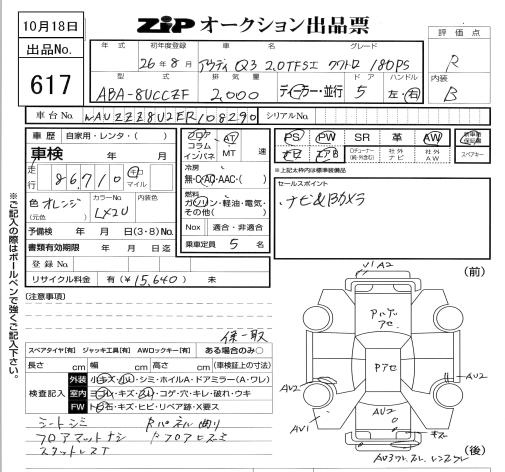 10月18日
ZIP オークション出品票
出品No.
617
評価点
R
内装
B
年式 初年度登録 車名 グレード
26年8月 アウディ Q3 2.0TFSI クワトロ 180PS
型式 排気量 ドア ハンドル
ABA-8UCCZF 2,000 ディーラー・並行 5 左・右
車台No. WAUZZZ8U2ER108290 シリアルNo.
車歴 自家用・レンタ・( )
車検 年 月
走行 86,710 km マイル
色 オレンジ カラーNo. LX2U 内装色
(元色)
予備検 年 月 日(3・8) No.
書類有効期限 年 月 日迄
登録No.
リサイクル料金 有(¥15,640) 未
フロア AT 速
コラム
インパネ MT
冷房
無・C・AC・AAC・( )
燃料
ガソリン・軽油・電気・
その他( )
Nox 適合・非適合
乗車定員 5 名
PS PW SR 革 AW 新車時保証書
ナビ エアB CDチューナー(純・外含む) 社外ナビ 社外AW スペアキー
※上記太枠内は標準装備品
セールスポイント
・ナビ&Bカメラ
※ご記入の際はボールペンで強くご記入下さい。
(注意事項)
スペアタイヤ[有] ジャッキ工具[有] AWロックキー[有] ある場合のみ○
長さ cm 幅 cm 高さ cm (車検証上の寸法)
検査記入
外装 小キズ・凹・シミ・ホイルA・ドアミラー(A・ワレ)
室内 ヨゴレ・キズ・スレ・コゲ・穴・キレ・破れ・ウキ
FW 飛石・キズ・ヒビ・リペア跡・X要ス
シートシミ Rパネル曲り
フロアマットナシ
(前)
(後)
A2
アセ
Pアセ
AU2
AU2
AU2
AU1
キズ